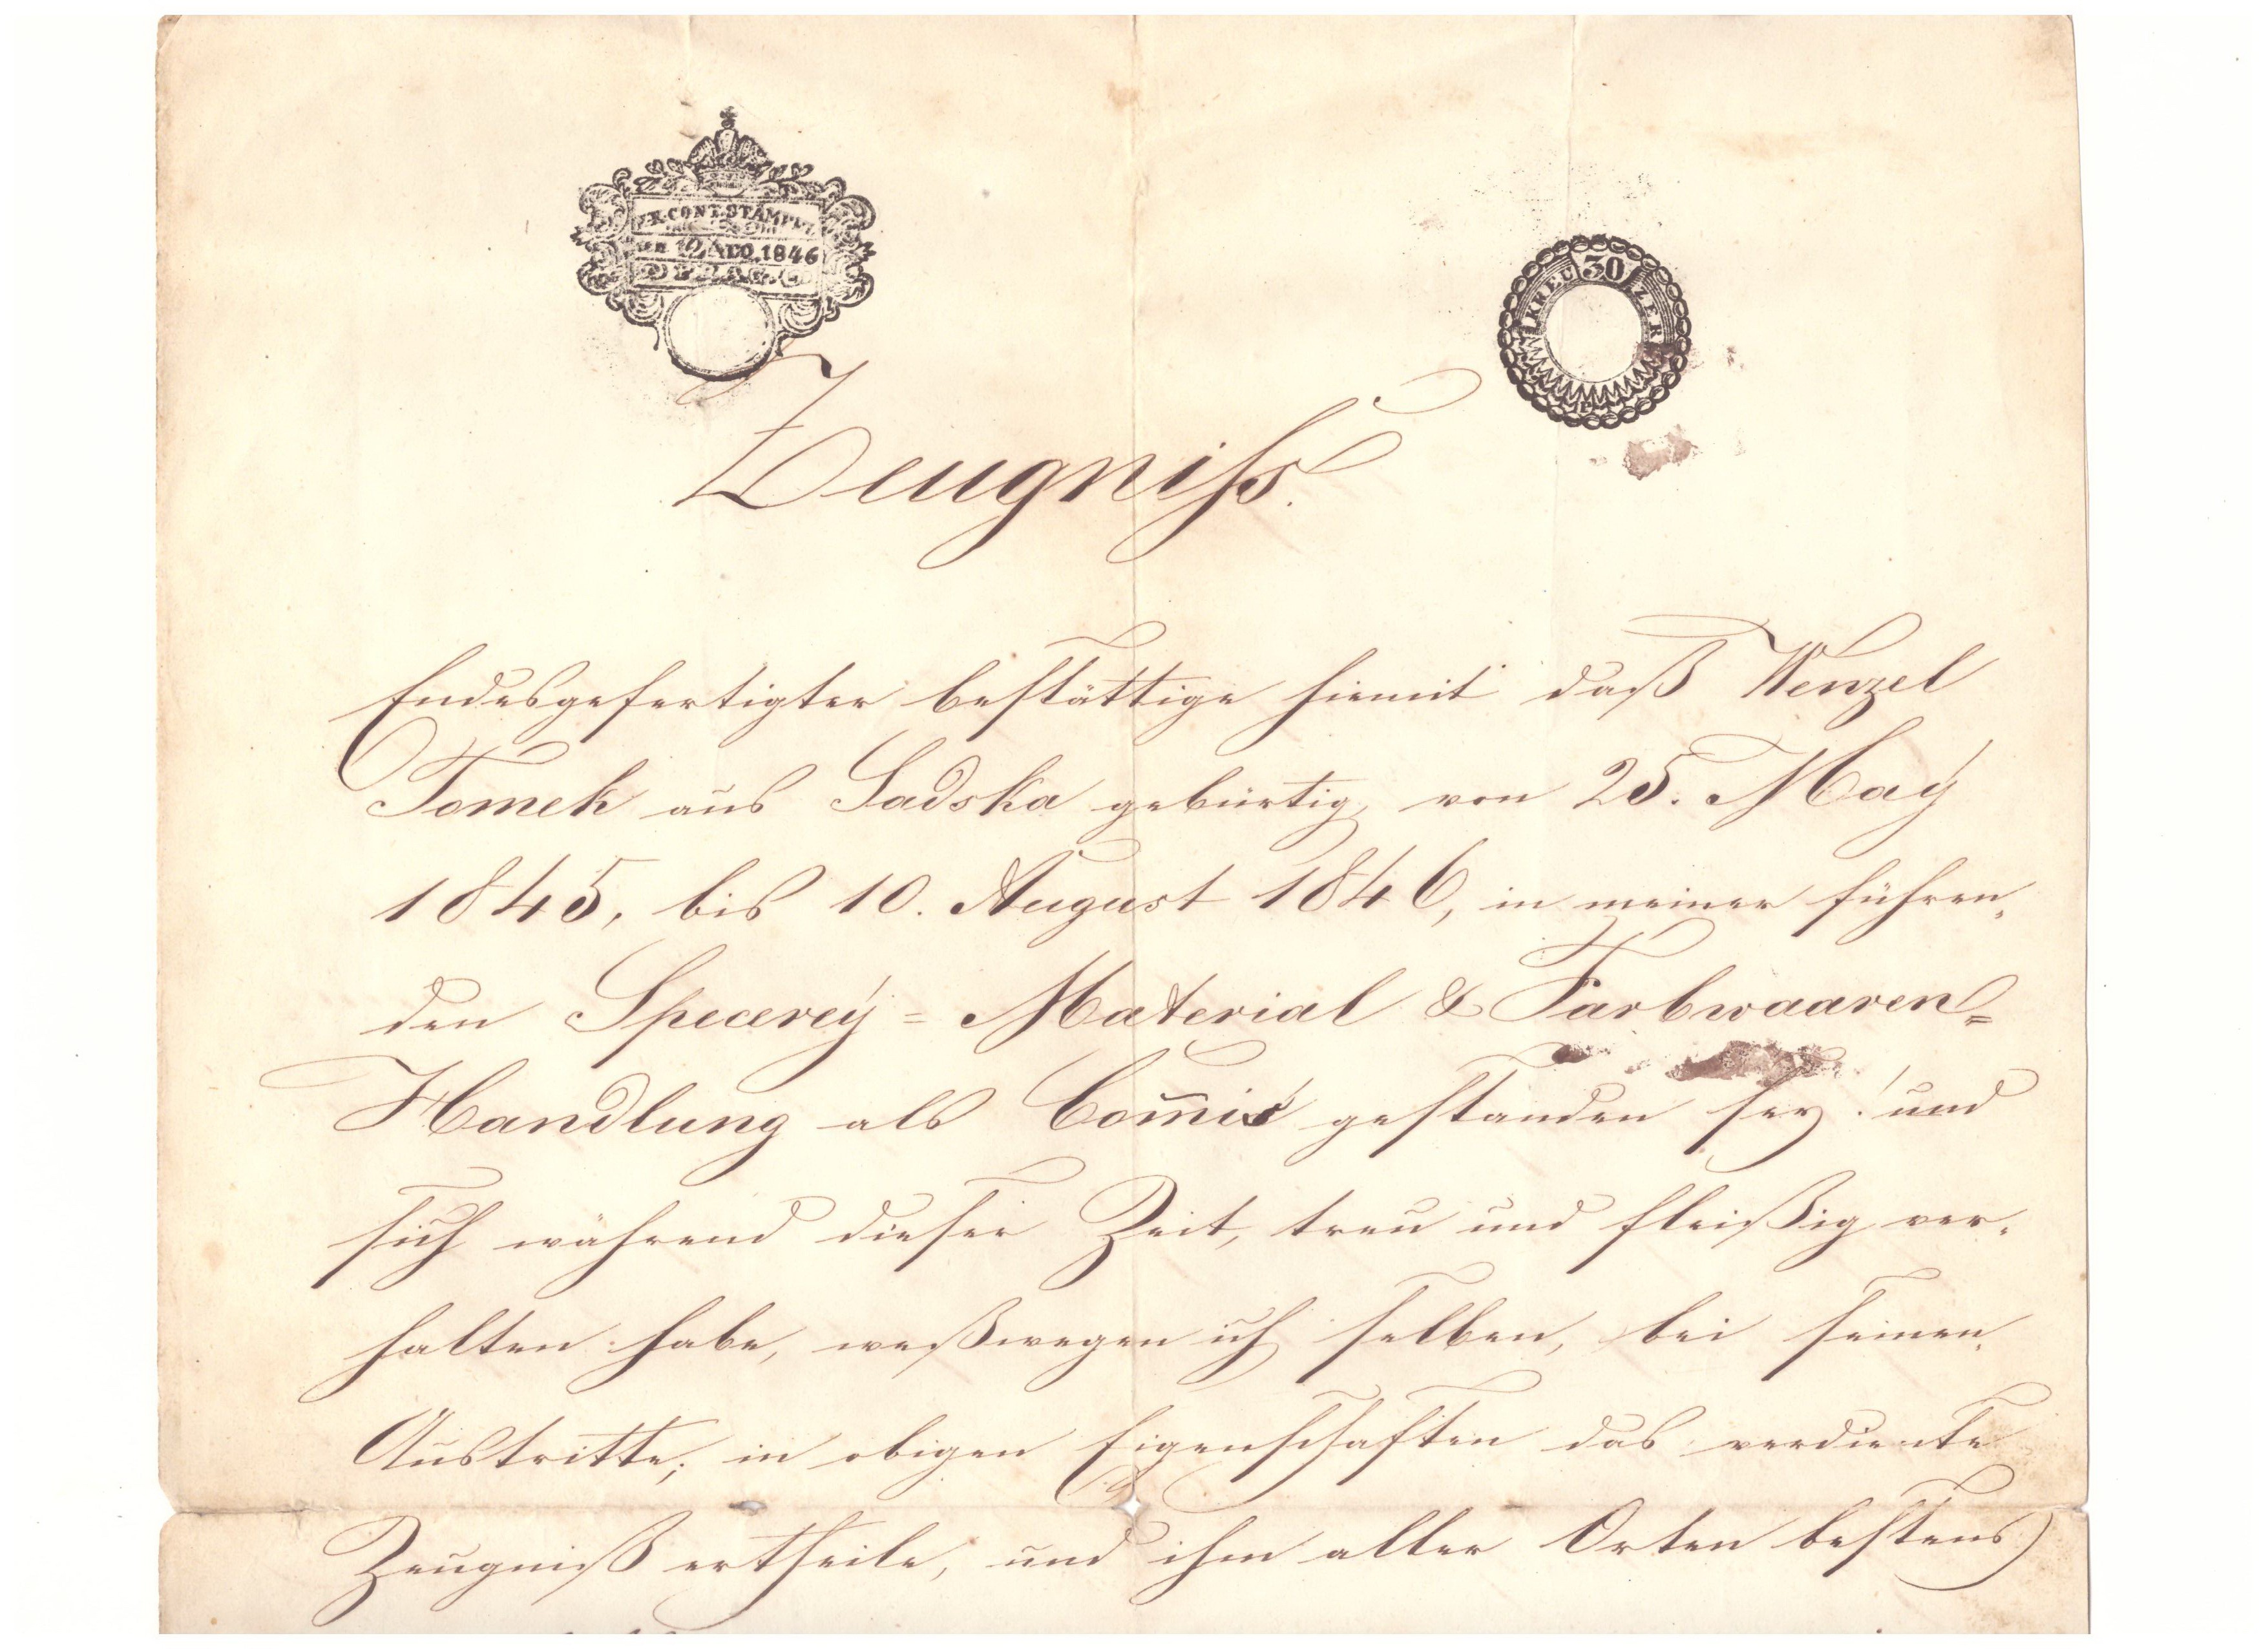 K.K. CONT. STÄMPEL
1846
30
KREUZER
Zeugniß.
Endesgefertigter bestättige hiemit daß Wenzel
Tomek aus Sadska gebürtig, von 25. Maÿ
1845, bis 10. August 1846, in meiner führen„
den Specereÿ = Material & Farbwaaren=
Handlung als Com̄is gestanden sey! und
sich während dieser Zeit, treu und fleißig ver„
halten habe, weßwegen ich selben, bei seinen„
Austritte, in obigen Eigenschaften das verdiente
Zeugniß ertheile, und ihm aller Orten bestens